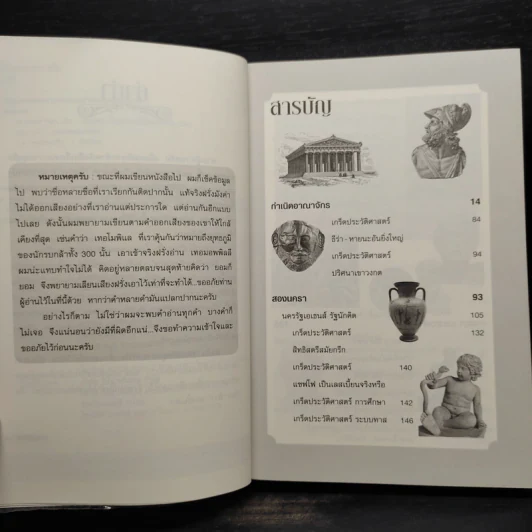 หมายเหตุครับ : ขณะที่ผมเขียนหนังสือไป ผมก็เช็คข้อมูล
ไป พบว่าชื่อหลายชื่อที่เราเรียกกันติดปากนั้น แท้จริงฝรั่งมังค่า
ไม่ได้ออกเสียงอย่างที่เราอ่านแต่ประการใด แต่อ่านกันอีกแบบ
ไปเลย ดังนั้นผมพยายามเขียนตามคำออกเสียงของเขาให้ใกล้
เคียงที่สุด เช่นคำว่า เทอโมพิแล ที่เราคุ้นกันว่าหมายถึงยุทธภูมิ
ของนักรบกล้าทั้ง 300 นั้น เอาเข้าจริงฝรั่งอ่าน
ผมน่ะแทบทำใจไม่ได้ คิดอยู่หลายตลบจนสุดท้ายคิดว่า ยอมก็
ยอม จึงพยายามเลียนเสียงฝรั่งเอาไว้เท่าที่จะทำได้...ขออภัยท่าน
ผู้อ่านไว้ในที่นี้ด้วย หากว่าคำหลายคำมันแปลกปากนะครับ
อย่างไรก็ตาม ไม่ใช่ว่าผมจะพบคำอ่านทุกคำ บางคำก็
ไม่เจอ จึงแน่นอนว่ายังมีที่ผิดอีกแน่...จึงขอทำความเข้าใจและ
ขออภัยไว้ก่อนนะครับ
สารบัญ
กำเนิดอาณาจักร 14
เกร็ดประวัติศาสตร์ 84
ธีร่า - หายนะอันยิ่งใหญ่
เกร็ดประวัติศาสตร์ 94
ปริศนาเขาวงกต
สองนครา 93
นครรัฐเอเธนส์ รัฐนักคิด 105
เกร็ดประวัติศาสตร์ 132
สิทธิสตรีสมัยกรีก
เกร็ดประวัติศาสตร์ 140
แซฟโฟ เป็นเลสเบี้ยนจริงหรือ
เกร็ดประวัติศาสตร์ การศึกษา 142
เกร็ดประวัติศาสตร์ ระบบทาส 146